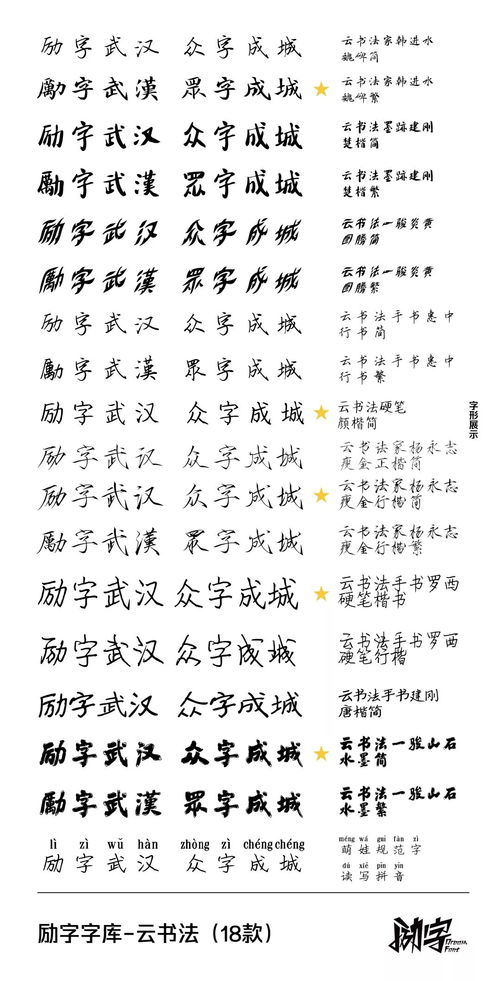 励字武汉 众字成城 云书法家韩进水
魏碑简
勵字武漢 眾字成城 云书法家韩进水
魏碑繁
励字武汉 众字成城 云书法墨跡建刚
楚楷简
勵字武漢 眾字成城 云书法墨跡建刚
楚楷繁
励字武汉 众字成城 云书法一骏炎黄
图腾简
勵字武漢 眾字成城 云书法一骏炎黄
图腾繁
励字武汉 众字成城 云书法手书惠中
行书简
勵字武漢 眾字成城 云书法手书惠中
行书繁
励字武汉 众字成城 云书法硬笔
颜楷简
励字武汉 众字成城 云书法家杨永志
瘦金正楷简
励字武汉 众字成城 云书法家杨永志
瘦金行楷简
勵字武漢 眾字成城 云书法家杨永志
瘦金行楷繁
励字武汉 众字成城 云书法手书罗西
硬笔楷书
励字武汉 众字成城 云书法手书罗西
硬笔行楷
励字武汉 众字成城 云书法手书建刚
唐楷简
励字武汉 众字成城 云书法一骏山石
水墨简
勵字武漢 眾字成城 云书法一骏山石
水墨繁
lì zì wǔ hàn zhòng zì chéng chéng
励字武汉 众字成城
méng wá guī fàn zì
萌娃规范字
dú xiě pīn yīn
读写拼音
字形展示
励字字库-云书法（18款）
励字
Dream
Font